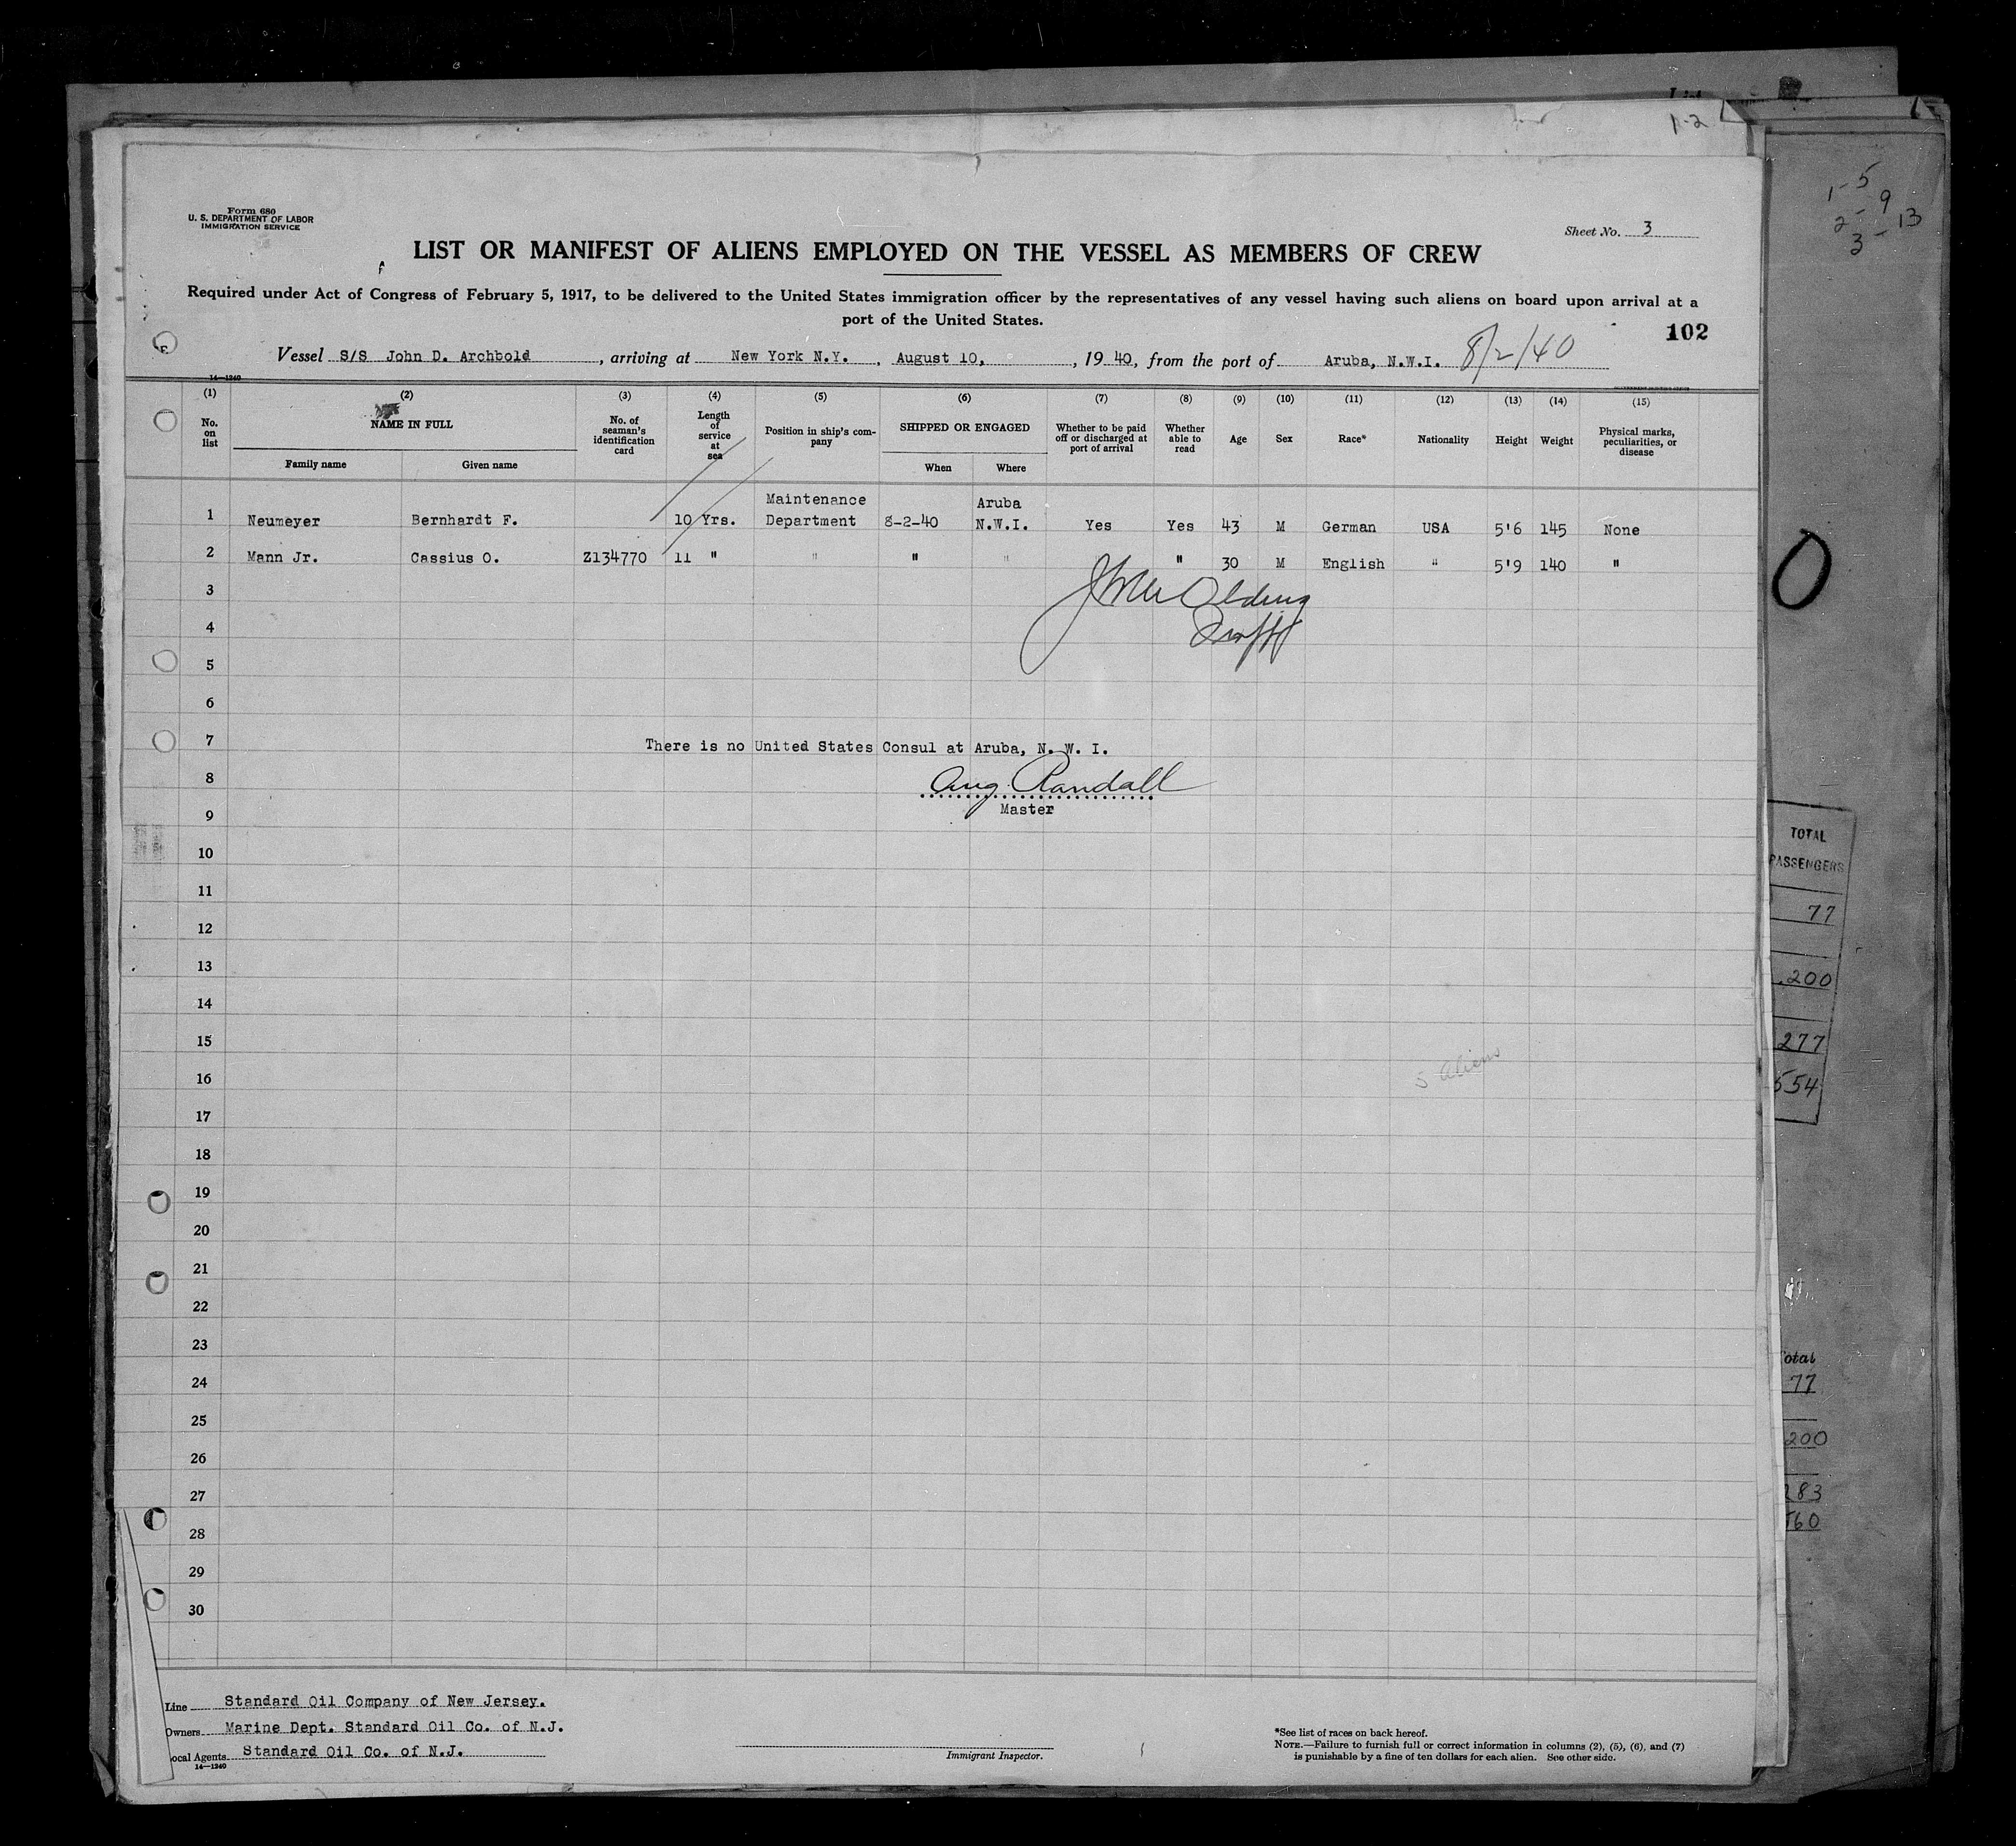 1-2
1-5
2-9
3-13
Form 680
U. S. DEPARTMENT OF LABOR
IMMIGRATION SERVICE
Sheet No. 3
LIST OR MANIFEST OF ALIENS EMPLOYED ON THE VESSEL AS MEMBERS OF CREW
Required under Act of Congress of February 5, 1917, to be delivered to the United States immigration officer by the representatives of any vessel having such aliens on board upon arrival at a
port of the United States.
102
Vessel S/S John D. Archbold, arriving at New York N.Y., August 10, , 1940, from the port of Aruba, N.W.I. 8/2/40
14—1240
(1) (2) (3) (4) (5) (6) (7) (8) (9) (10) (11) (12) (13) (14) (15)
No. on list
NAME IN FULL
Family name
Given name
No. of seaman's identification card
Length of service at sea
Position in ship's company
SHIPPED OR ENGAGED
When
Where
Whether to be paid off or discharged at port of arrival
Whether able to read
Age
Sex
Race*
Nationality
Height
Weight
Physical marks, peculiarities, or disease
1 Neumeyer Bernhardt F. 10 Yrs. Maintenance Department 8-2-40 Aruba N.W.I. Yes Yes 43 M German USA 5'6 145 None
2 Mann Jr. Cassius O. Z134770 11 " " " " " 30 M English " 5'9 140 "
3
4
5
6
7 There is no United States Consul at Aruba, N. W. I.
8 Aug Randall
Master
9
10
11
12
13
14
15
16 5 aliens
17
18
19
20
21
22
23
24
25
26
27
28
29
30
Line Standard Oil Company of New Jersey.
Owners Marine Dept. Standard Oil Co. of N.J.
ocal Agents Standard Oil Co. of N.J.
14—1240
Immigrant Inspector.
*See list of races on back hereof.
NOTE.—Failure to furnish full or correct information in columns (2), (5), (6), and (7)
is punishable by a fine of ten dollars for each alien. See other side.
0
TOTAL
PASSENGERS
77
200
277
554
otal
77
200
283
560